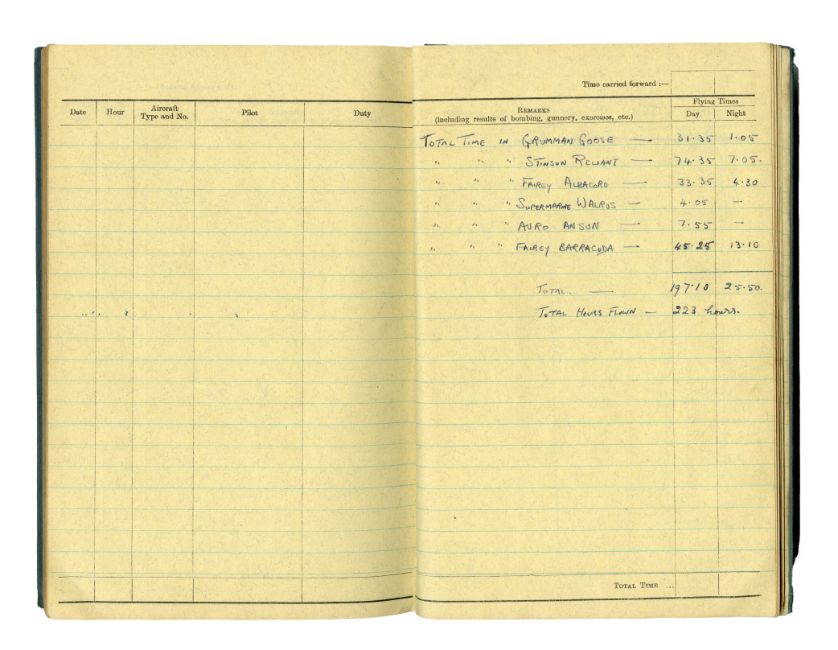 Time carried forward :—
Date Hour Aircraft Type and No. Pilot Duty REMARKS (including results of bombing, gunnery, exercises, etc.) Flying Times Day Night
TOTAL TIME IN GRUMMAN GOOSE — 31.35 1.05
" " " STINSON RELIANT — 74.35 7.05.
" " " FAIREY ALBACORE — 33.35 4.30
" " " SUPERMARINE WALRUS — 4.05 —
" " " AVRO ANSON — 7.55 —
" " " FAIREY BARRACUDA — 45.25 13.10
TOTAL — 197.10 25.50.
TOTAL HOURS FLOWN — 223 hours.
TOTAL TIME ...